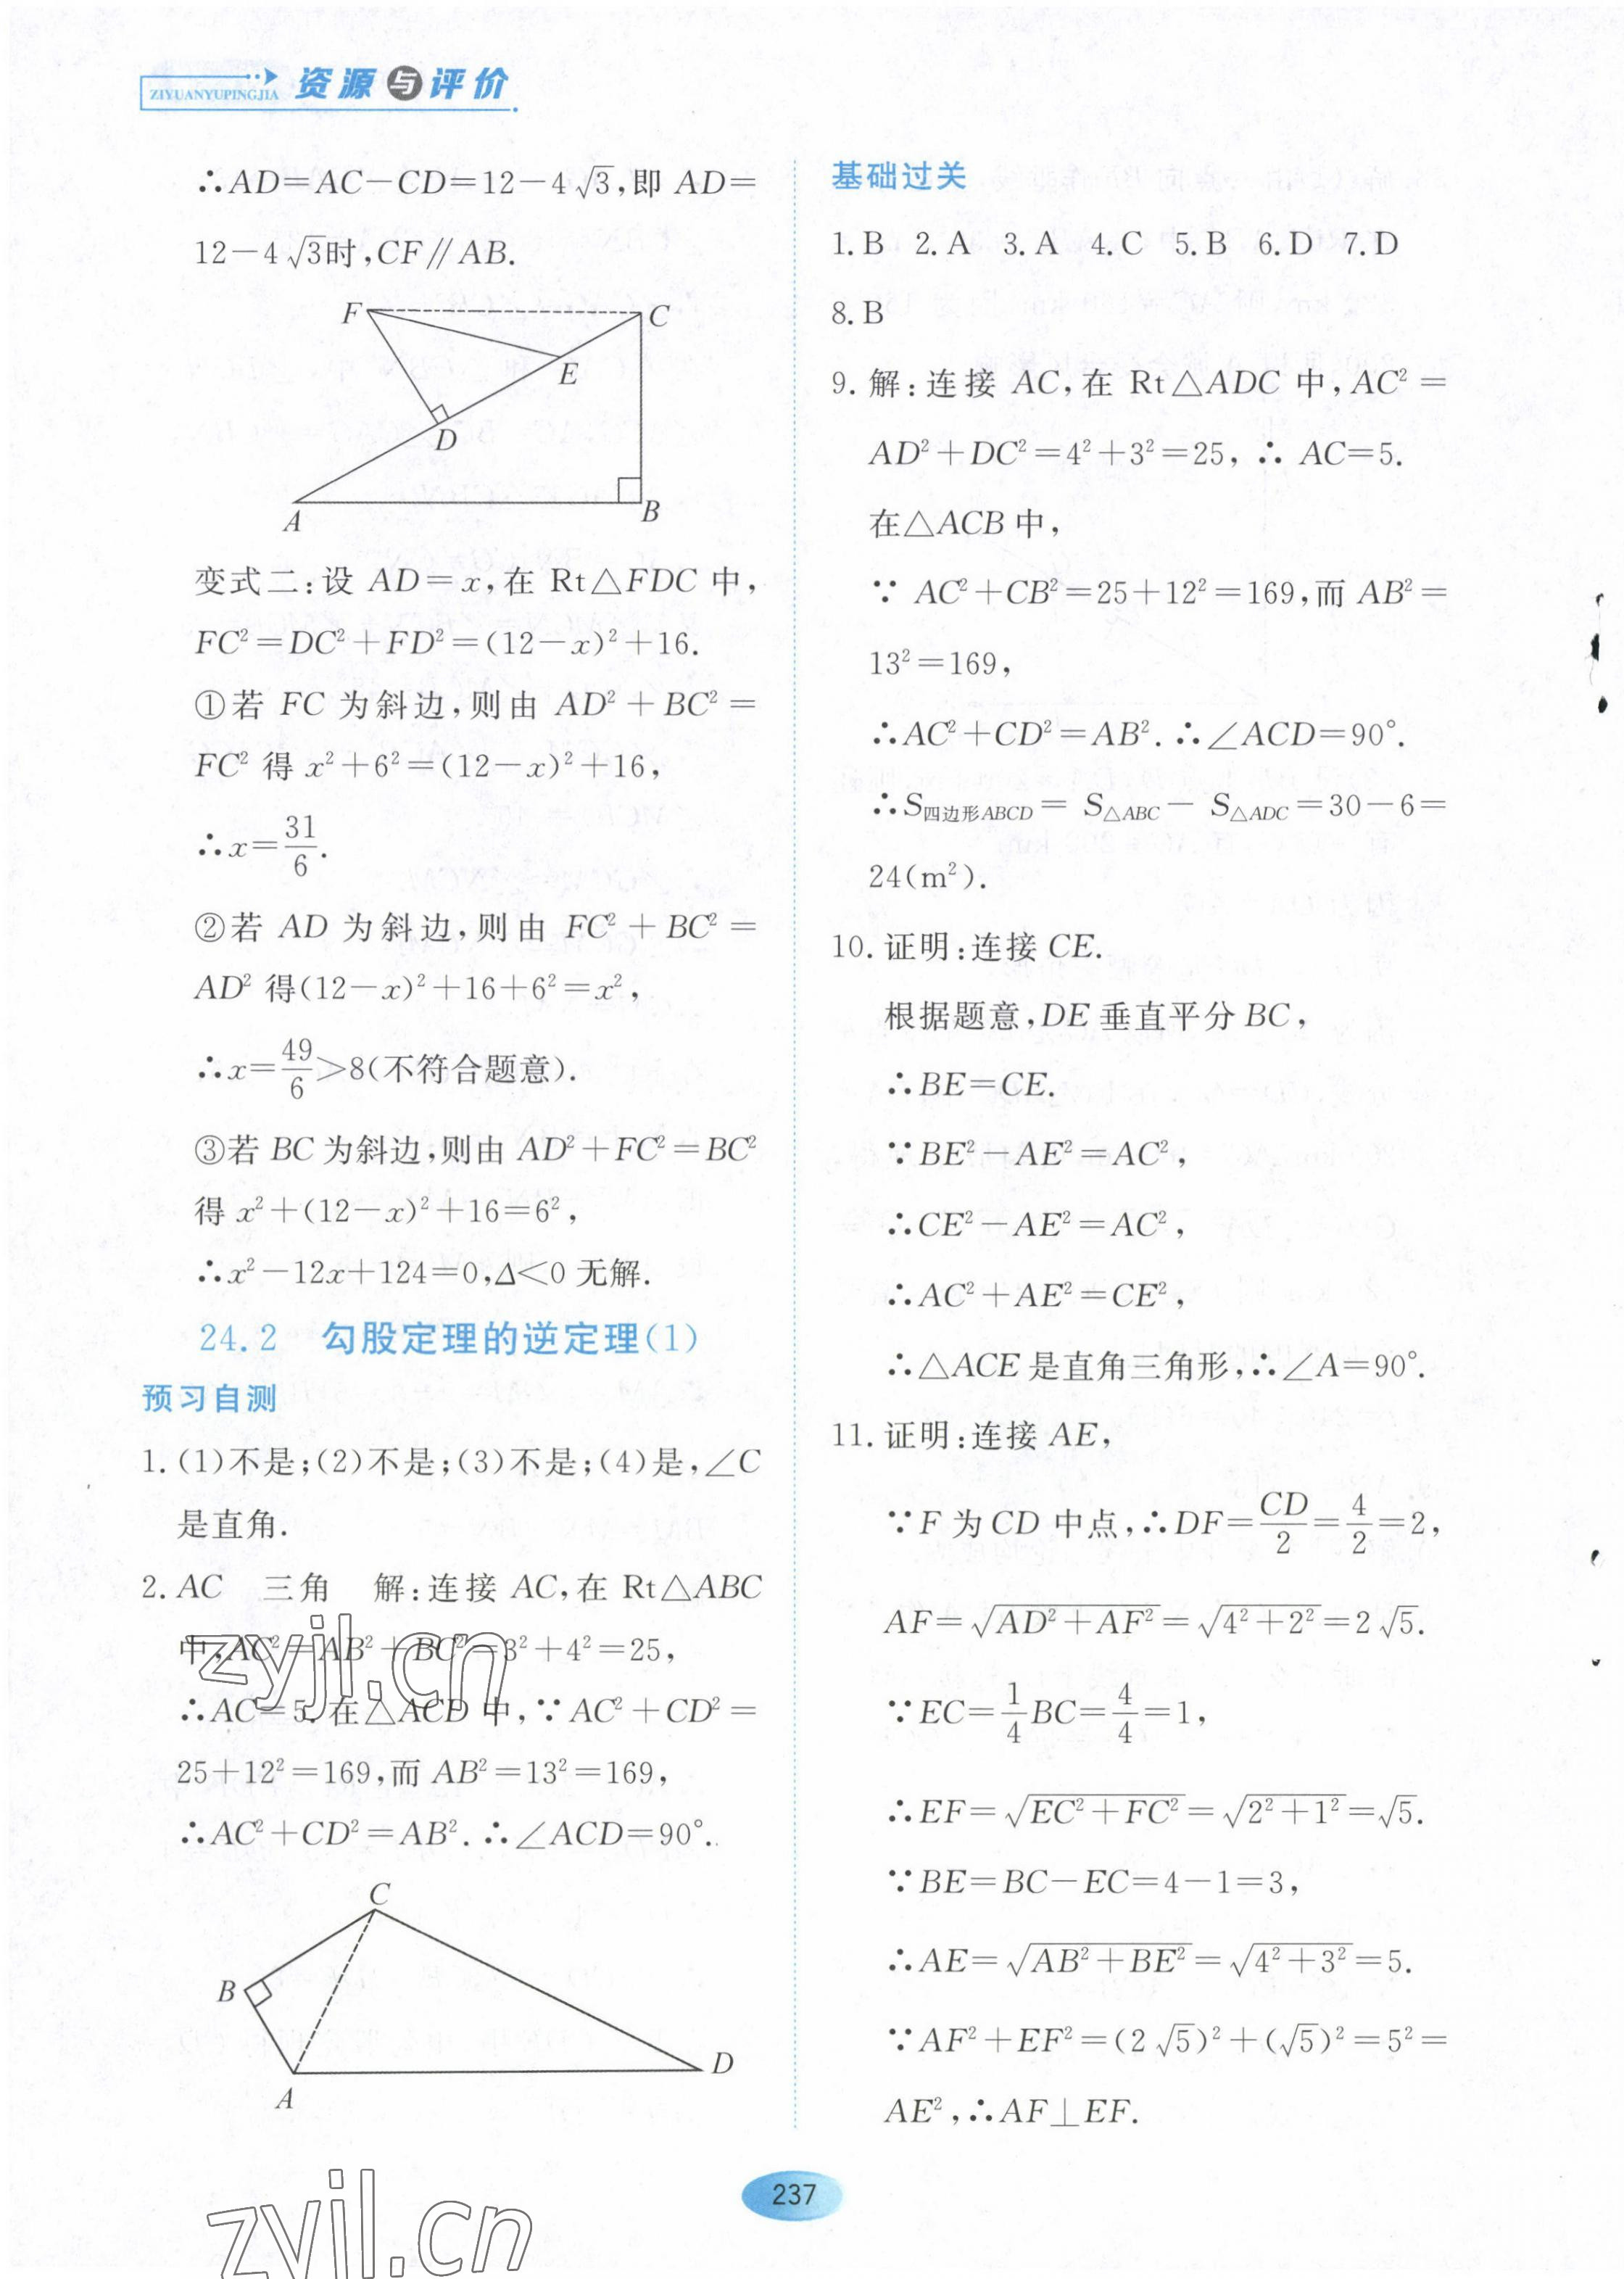 ZIYUANYUPINGJIA 资源与评价
∴AD=AC-CD=12-4√3,即 AD=
12-4√3时,CF∥AB.
F
C
E
D
A
B
变式二:设 AD=x,在 Rt△FDC 中,
FC²=DC²+FD²=(12-x)²+16.
①若 FC 为斜边,则由 AD²+BC²=
FC² 得 x²+6²=(12-x)²+16,
∴x=31/6.
②若 AD 为斜边,则由 FC²+BC²=
AD² 得(12-x)²+16+6²=x²,
∴x=49/6>8(不符合题意).
③若 BC 为斜边,则由 AD²+FC²=BC²
得 x²+(12-x)²+16=6²,
∴x²-12x+124=0,Δ<0 无解.
24.2 勾股定理的逆定理(1)
预习自测
1.(1)不是;(2)不是;(3)不是;(4)是,∠C
是直角.
2.AC 三角 解:连接 AC,在 Rt△ABC
中,AC²=AB²+BC²=3²+4²=25,
∴AC=5.在△ACD 中,∵AC²+CD²=
25+12²=169,而 AB²=13²=169,
∴AC²+CD²=AB².∴∠ACD=90°.
zyjl.cn
C
B
D
A
zyjl.cn
基础过关
1.B 2.A 3.A 4.C 5.B 6.D 7.D
8.B
9.解:连接 AC,在 Rt△ADC 中,AC²=
AD²+DC²=4²+3²=25,∴ AC=5.
在△ACB 中,
∵ AC²+CB²=25+12²=169,而 AB²=
13²=169,
∴AC²+CD²=AB².∴∠ACD=90°.
∴S四边形ABCD= S△ABC- S△ADC=30-6=
24(m²).
10.证明:连接 CE.
根据题意,DE 垂直平分 BC,
∴BE=CE.
∵BE²-AE²=AC²,
∴CE²-AE²=AC²,
∴AC²+AE²=CE²,
∴△ACE 是直角三角形,∴∠A=90°.
11.证明:连接 AE,
∵F 为 CD 中点,∴DF=CD/2=4/2=2,
AF=√(AD²+AF²)=√(4²+2²)=2√5.
∵EC=1/4BC=4/4=1,
∴EF=√(EC²+FC²)=√(2²+1²)=√5.
∵BE=BC-EC=4-1=3,
∴AE=√(AB²+BE²)=√(4²+3²)=5.
∵AF²+EF²=(2√5)²+(√5)²=5²=
AE²,∴AF⊥EF.
237